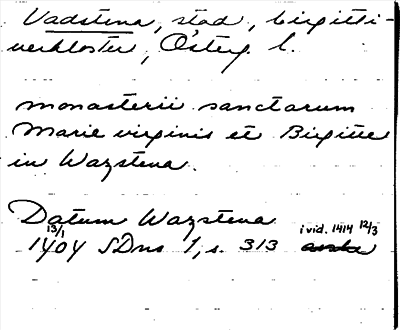 Vadstena, stad, birgitti-
nerkloster, Österg. l.
monasterii sanctarum
Marie virginis et Birgitte
in Wazstena.
Datum Wazstena
13/1 i vid. 1414 12/3
1404 SDns 1, s. 313